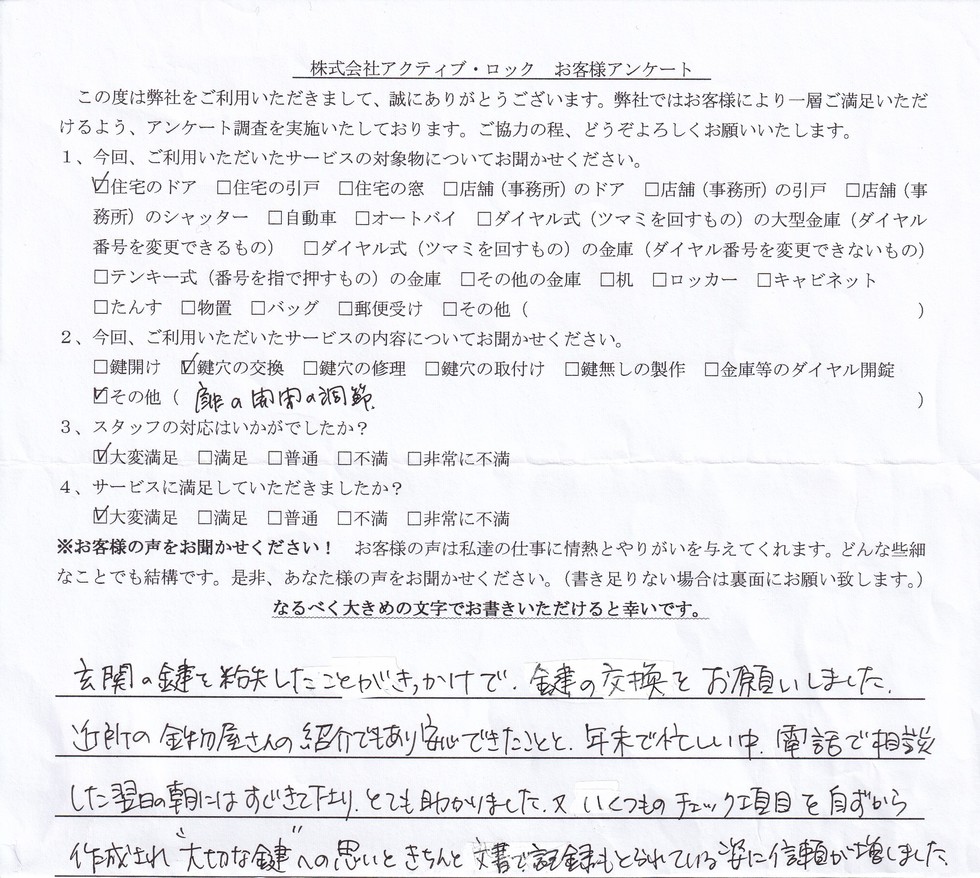 株式会社アクティブ・ロック　お客様アンケート
この度は弊社をご利用いただきまして、誠にありがとうございます。弊社ではお客様により一層ご満足いただ
けるよう、アンケート調査を実施いたしております。ご協力の程、どうぞよろしくお願いいたします。
１、今回、ご利用いただいたサービスの対象物についてお聞かせください。
☑住宅のドア　□住宅の引戸　□住宅の窓　□店舗（事務所）のドア　□店舗（事務所）の引戸　□店舗（事
務所）のシャッター　□自動車　□オートバイ　□ダイヤル式（ツマミを回すもの）の大型金庫（ダイヤル
番号を変更できるもの）　□ダイヤル式（ツマミを回すもの）の金庫（ダイヤル番号を変更できないもの）
□テンキー式（番号を指で押すもの）の金庫　□その他の金庫　□机　□ロッカー　□キャビネット
□たんす　□物置　□バッグ　□郵便受け　□その他（　　　　　）
２、今回、ご利用いただいたサービスの内容についてお聞かせください。
□鍵開け　☑鍵穴の交換　□鍵穴の修理　□鍵穴の取付け　□鍵無しの製作　□金庫等のダイヤル開錠
☑その他（扉の開閉の調節　　　　　）
３、スタッフの対応はいかがでしたか？
☑大変満足　□満足　□普通　□不満　□非常に不満
４、サービスに満足していただきましたか？
☑大変満足　□満足　□普通　□不満　□非常に不満
※お客様の声をお聞かせください！　お客様の声は私達の仕事に情熱とやりがいを与えてくれます。どんな些細
なことでも結構です。是非、あなた様の声をお聞かせください。（書き足りない場合は裏面にお願い致します。）
なるべく大きめの文字でお書きいただけると幸いです。
玄関の鍵を紛失したことがきっかけで、鍵の交換をお願いしました。
近所の金物屋さんの紹介でもあり安心できたことと、年末で忙しい中、電話で相談
した翌日の朝にはすぐきて下り、とても助かりました。又いくつものチェック項目を自ずから
作成され“大切な鍵”への思いときちんと文書で記録もとられている姿に信頼が増しました。